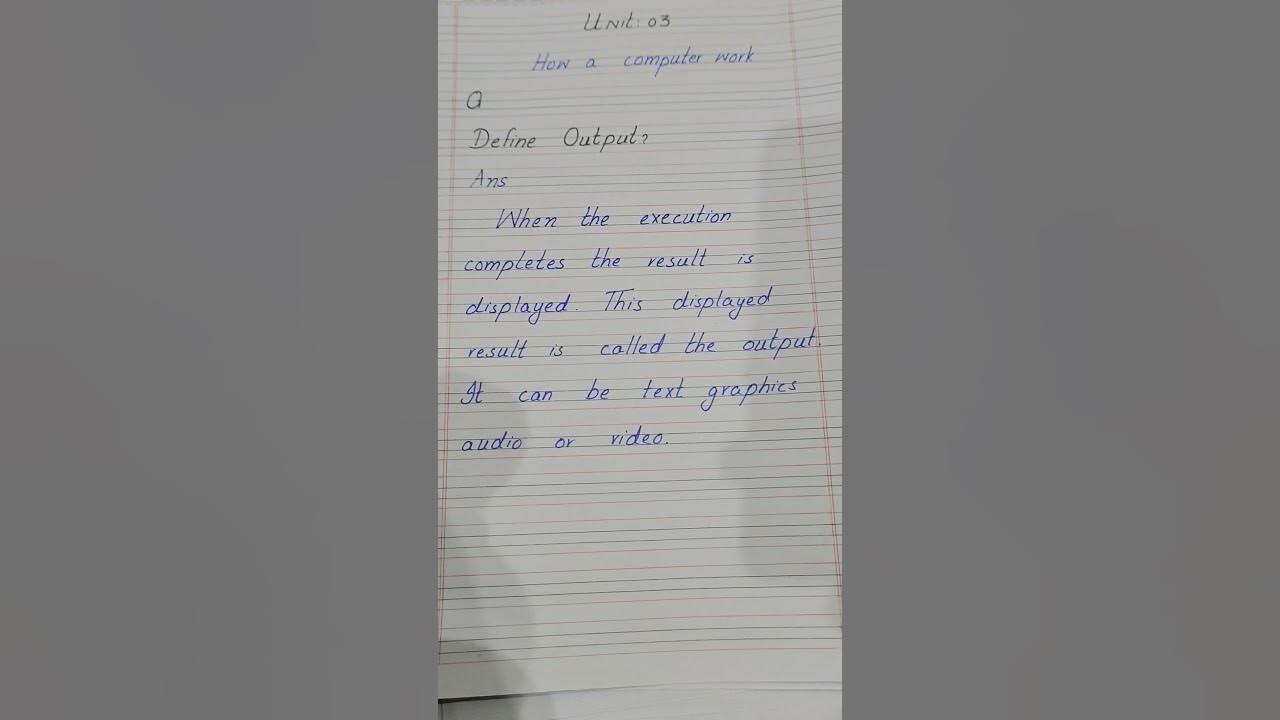 Unit: 03
How a computer work
Q
Define Output?
Ans
When the execution
completes the result is
displayed. This displayed
result is called the output.
It can be text graphics
audio or video.